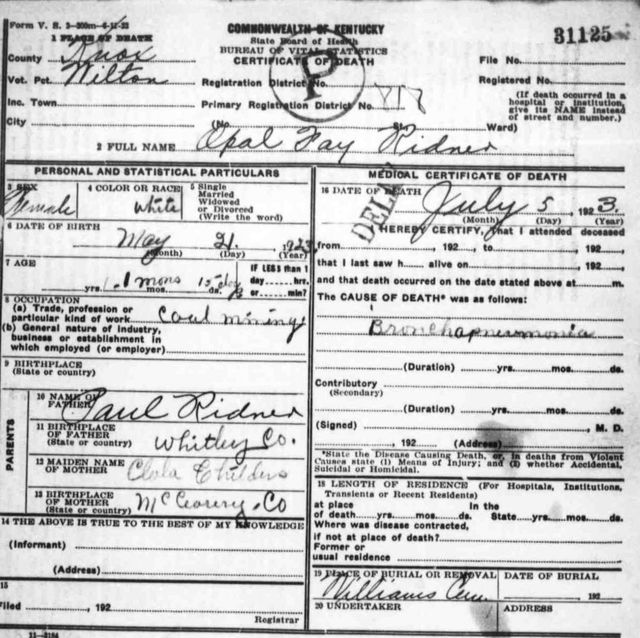 Form V. S. 3-300m-6-11-23
COMMONWEALTH OF KENTUCKY
State Board of Health
BUREAU OF VITAL STATISTICS
CERTIFICATE OF DEATH
31125
1 PLACE OF DEATH
County Knox
Vot. Pct. Wilton
Inc. Town
City
File No.
Registered No.
Registration District No.
Primary Registration District No.
(If death occurred in a hospital or institution, give its NAME instead of street and number.)
(No. St. Ward)
2 FULL NAME Opal Fay Ridner
PERSONAL AND STATISTICAL PARTICULARS
3 SEX Female
4 COLOR OR RACE White
5 Single
Married
Widowed
or Divorced
(Write the word)
6 DATE OF BIRTH
May 21, 1923
(Month) (Day) (Year)
7 AGE
IF LESS than 1
day, hrs.
or min?
yrs. 1 mons mos. 15 days ds.
8 OCCUPATION
(a) Trade, profession or
particular kind of work Coal mining
(b) General nature of industry,
business or establishment in
which employed (or employer)
9 BIRTHPLACE
(State or country)
PARENTS
10 NAME OF
FATHER Paul Ridner
11 BIRTHPLACE
OF FATHER
(State or country) Whitley Co.
12 MAIDEN NAME
OF MOTHER Childers
13 BIRTHPLACE
OF MOTHER
(State or country) McCreary Co
14 THE ABOVE IS TRUE TO THE BEST OF MY KNOWLEDGE
(Informant)
(Address)
15
Filed , 192
Registrar
11-3184
MEDICAL CERTIFICATE OF DEATH
16 DATE OF DEATH
July 5, 1923.
(Month) (Day) (Year)
I HEREBY CERTIFY, that I attended deceased
from , 192 , to , 192
that I last saw h alive on , 192
and that death occurred on the date stated above at m.
The CAUSE OF DEATH* was as follows:
Bronchapneumonia
(Duration) yrs. mos. ds.
Contributory
(Secondary)
(Duration) yrs. mos. ds.
(Signed) , M. D.
, 192 (Address)
*State the Disease Causing Death, or, in deaths from Violent
Causes state (1) Means of Injury; and (2) whether Accidental,
Suicidal or Homicidal.
18 LENGTH OF RESIDENCE (For Hospitals, Institutions,
Transients or Recent Residents)
at place In the
of death yrs. mos. ds. State yrs. mos. ds.
Where was disease contracted,
if not at place of death?
Former or
usual residence
19 PLACE OF BURIAL OR REMOVAL
Williams Cem.
DATE OF BURIAL
, 192
20 UNDERTAKER
ADDRESS